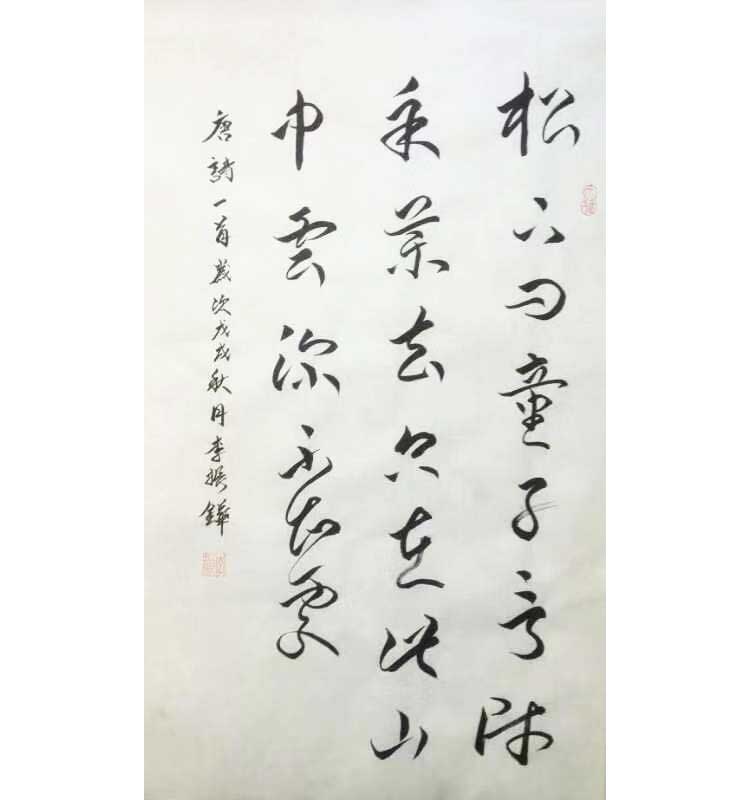 松下问童子言师
采药去只在此山
中雲深不知處
唐詩一首歲次戊戌秋月李振鏵